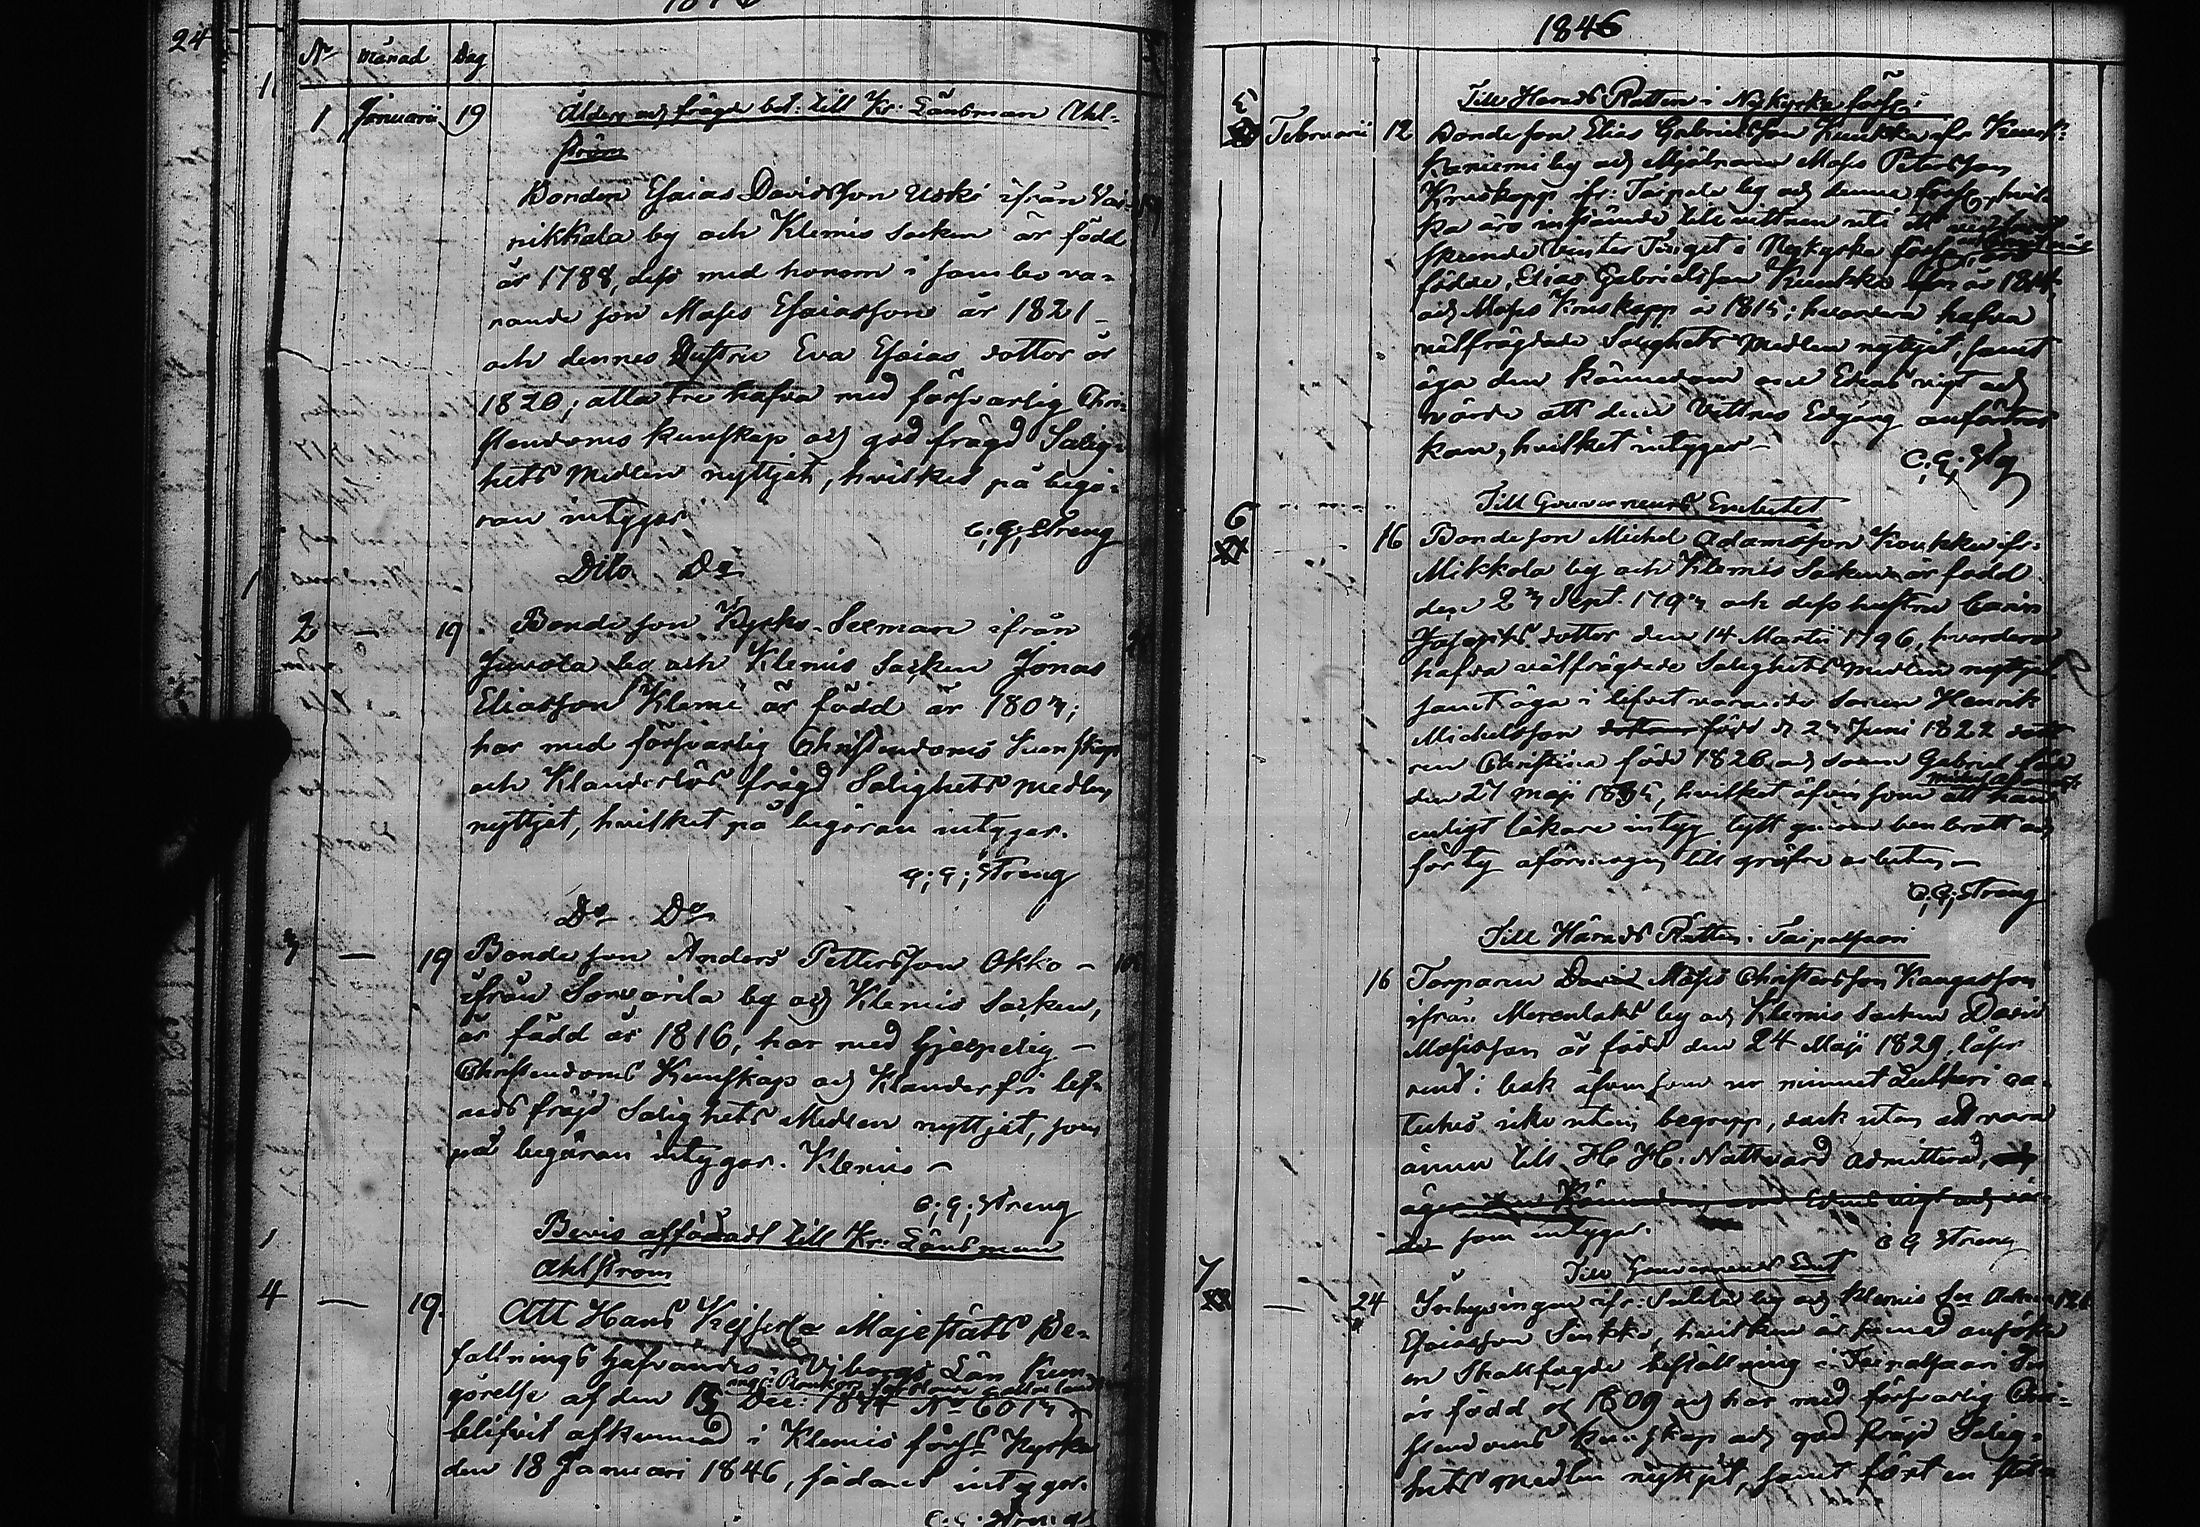 24
No Månad Dag
1 Januarii 19 Ålders och frägde bet: till Kr: Länsman Ahl-
ström
Bonden Esaias Davidsson Uski ifrån Vai-
nikkala by och Klemis Socken är född
år 1788, dess med honom i sambo va-
rande son Moses Esaiasson år 1821
och dennes Hustru Eva Esaias dotter år
1820; alla tre hafva med försvarlig Chri-
stendoms kunskap och god frägd Salig-
hets Medlen nyttjat, hvilket på begä-
ran intygar
C; G; Streng
Dito Do
2 — 19 Bonde son Kyrko-Sexman ifrån
Juvola by och Klemis Socken Jonas
Eliasson Klemi är född år 1807;
har med försvarlig Christendoms kunskap
och Klanderlös frägd Salighets medlen
nyttjat, hvilket på begäran intygar.
C; G; Streng
Do Do
3 — 19 Bonde son Anders Pettersson Okko —
ifrån Sorvarila by och Klemis Socken,
är född år 1816, har med hjelpelig —
Christendoms Kunskap och Klanderfri lef-
nads fräjd Salighets Medlen nyttjat, som
på begäran intygar. Klemis —
C; G; Streng
Bevis till Kr: Länsman
Ahlström
4 — 19. Att Hans Kejserliga Majestäts Be-
fallnings hafvandes i Viborgs Län Kun-
görelse af den 13 Dec: 1844 No 60
blifvit afkunnad i Klemis förs: Kyrka
den 18 Januari 1846, sådant intygar.
C; G; Streng
1846
Till Härads Rätten i Nykyrka förs:
5 Februarii 12 Bonde son Elias Gabrielsson Kukko ifr
by och Mjölnaren Moses Petersson
Kruskopp ifr: Taipale by och denna förs:, hvil-
ka äro instämde till vittnen uti
skeende Vinter Tinget i Nykyrka
födde, Elias Gabrielsson Kukko år 1814
och Moses Kruskopp år 1815; hvardera hafva
välfrägdade Salighets Medlen nyttjat, samt
äga den kännedom om Edens vigt och
värde att dem Vittnes Edgång anförtros
kan, hvilket intygar —
C; G; Stg
Till Gouverneurs Embetet
6 — 16 Bonde son Michel Adamsson Koukku ifr:
Mikkola by och Klemis Socken är född
den 27 Sept. 1797 och dess hustru Carin
Josephs dotter den 14 Martii 1796, hvardera
hafva välfrägdade Salighets medlen nyttjat
samt äga i lifvet varande Sonen Henrik
Michelsson född d 27 Juni 1822 dott-
ren Christina född 1826 och sonen Gabriel född
den 27 Maji 1835, hvilket äfven som att han
enligt läkare intyg lytt genom ben brott och
för ty oförmögen till gröfre arbeten —
C; G; Streng
Till Härads Rätten i Taipalsaari
16 Torparen David Moses Christersson Kangasson
ifrån by och Klemis Socken David
Mosisson är född den 24 Maji 1829, läser
rent i bok äfven som ur minnet Lutheri ca-
teches icke utan begrepp, dock utan att vara
ännu till H. H. Nattvard admitterad,
äger den Kännedom om Edens vigt och vär-
de som intygar.
C G Streng
Till Gouverneurs Emt
7 — 24 Inhysingen ifr: by och Klemis Sn Adam
Esaiasson Sinkko, hvilken är sinnad ansöka
en Skallfogde beställning i Taipalsaari Sn
är född år 1809 och har med försvarlig Chri-
stendoms kunskap och god fräjd Salig-
hets medlen nyttjat, samt fört en stil-